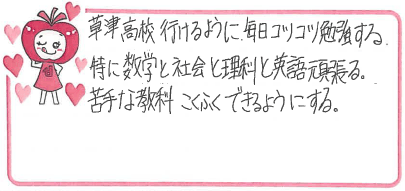 草津高校 行けるように、毎日コツコツ勉強する。
特に数学と社会と理科と英語頑張る。
苦手な教科 こくふくできるようにする。